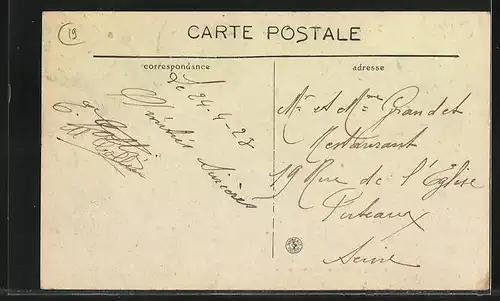 19
CARTE POSTALE
correspondance
adresse
Le 24-4-23
Amitiés Sincères
Mr et Mme Grandet
Restaurant
19 Rue de l'Église
Puteaux
Seine